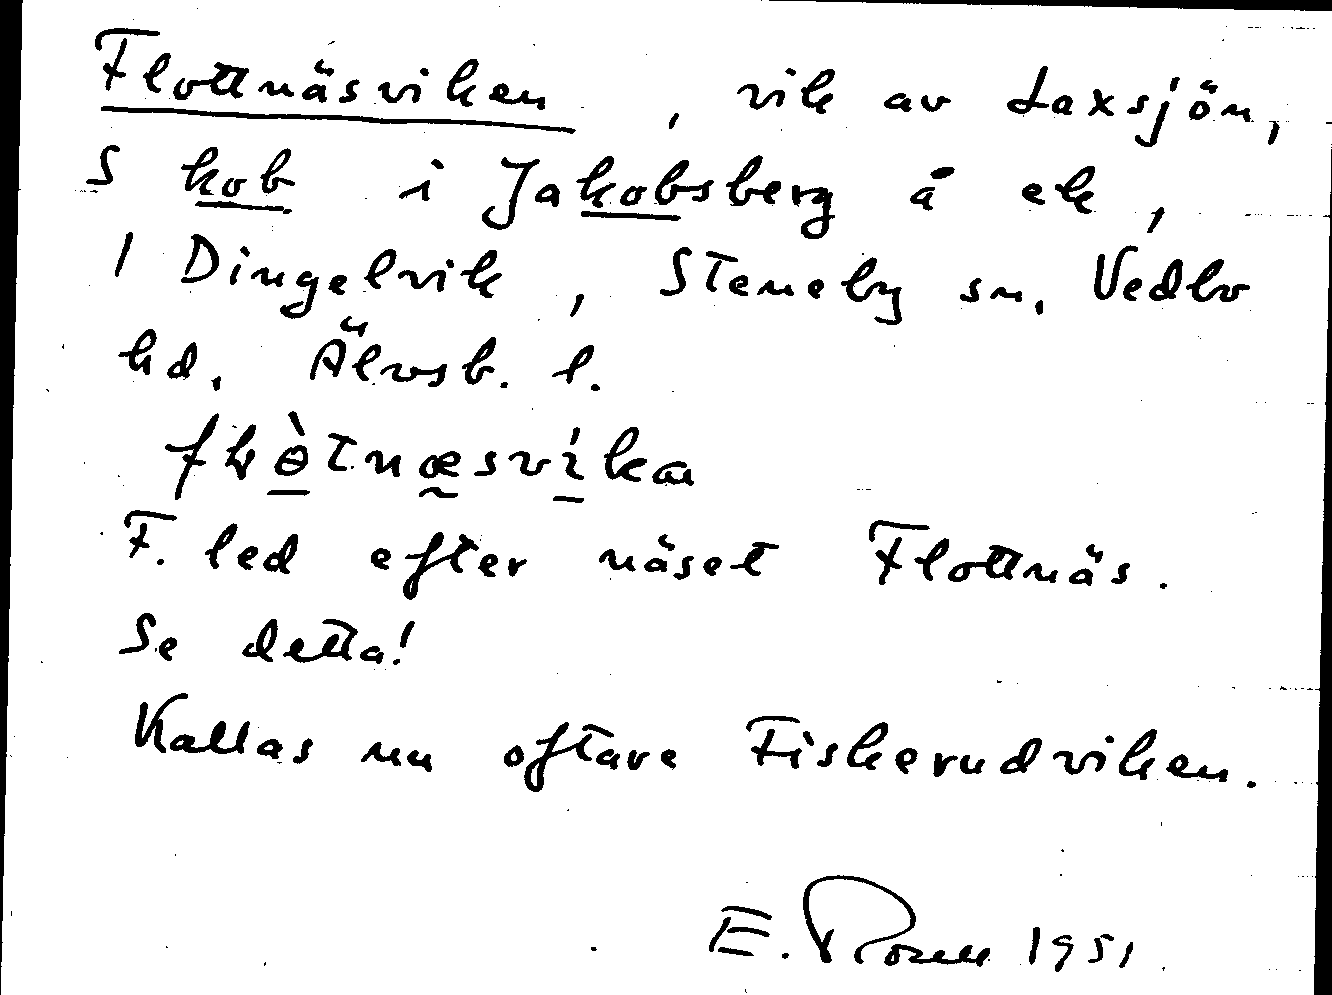 Flottnäsviken, vik av Laxsjön,
S kob i Jakobsberg å ek,
1 Dingelvik, Steneby sn. Vedbo
hd. Älvsb. l.
F. led efter näset Flottnäs.
Se detta!
Kallas nu oftare Fiskerudviken.
E. Rosell 1951